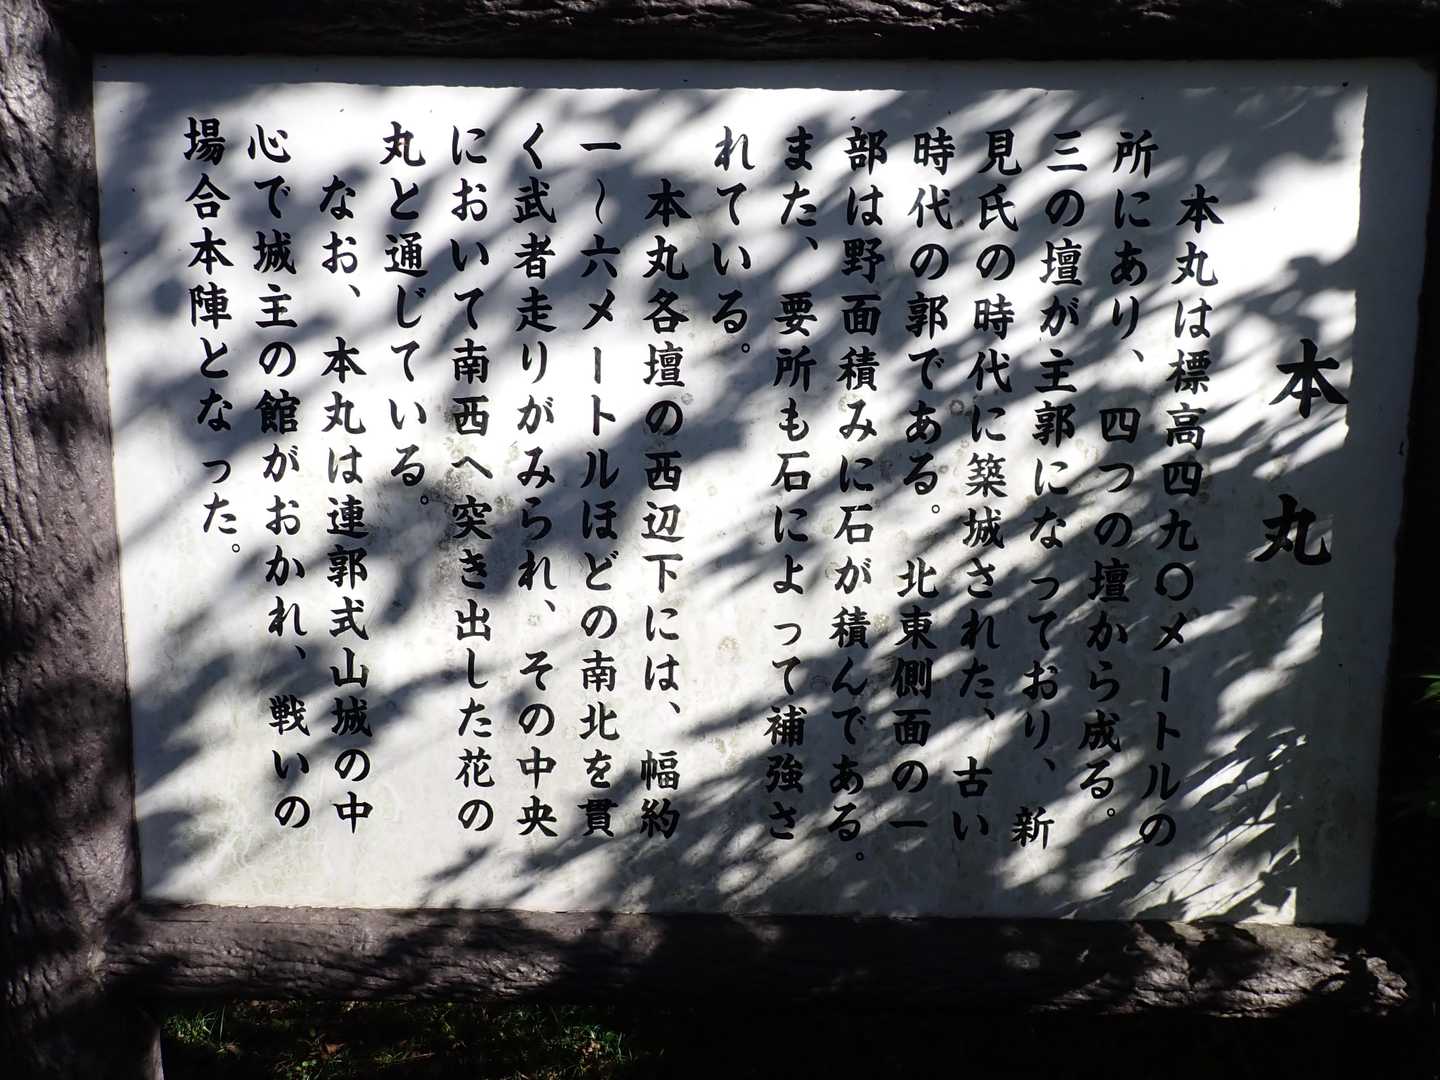 本丸
本丸は標高四九〇メートルの
所にあり、四つの壇から成る。
三の壇が主郭になっており、新
見氏の時代に築城された、古い
時代の郭である。北東側面の一
部は野面積みに石が積んである。
また、要所も石によって補強さ
れている。
本丸各壇の西辺下には、幅約
一〜六メートルほどの南北を貫
く武者走りがみられ、その中央
において南西へ突き出した花の
丸と通じている。
なお、本丸は連郭式山城の中
心で城主の館がおかれ、戦いの
場合本陣となった。